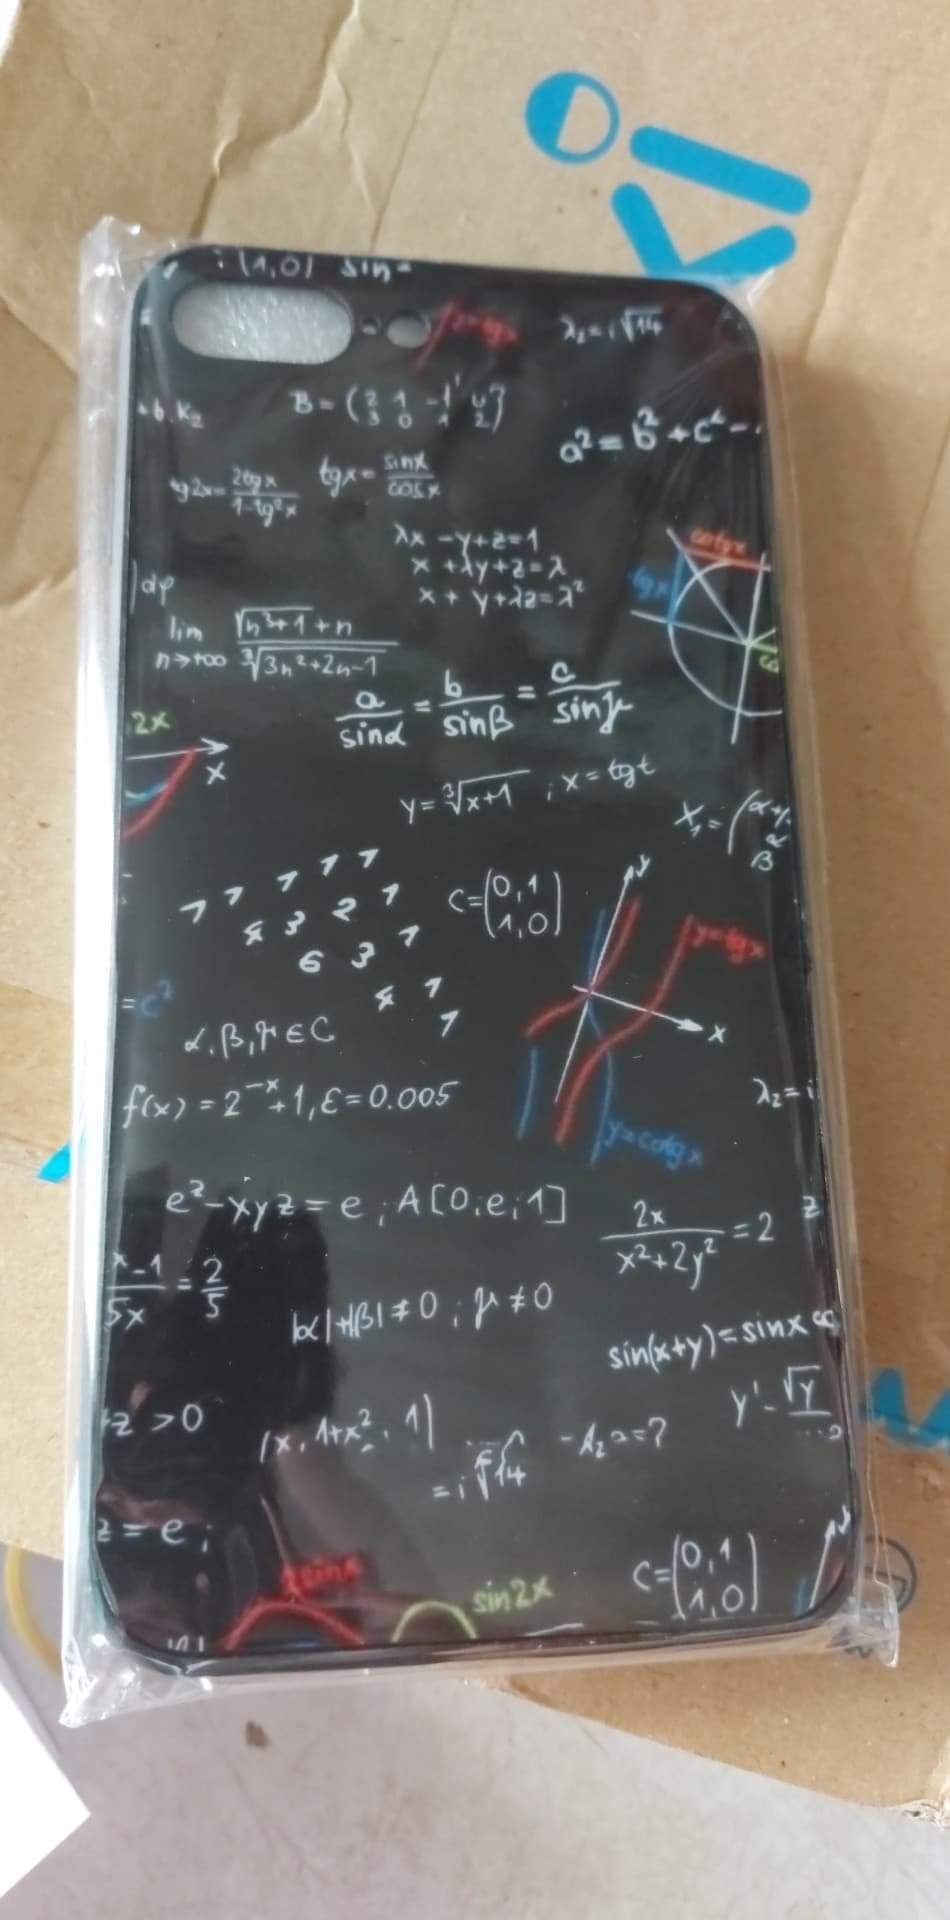 sin
y=tgx
λ₂=i√14
+b.K₂
B=(2 1 -1 4
3 0 1 2)
a²=b²+c²-
tg2x=2tgx/1-tg²x
tgx=sinx/cosx
λx-y+z=1
x+λy+z=λ
x+y+λz=λ²
cotgx
tgx
dρ
lim n→+∞ √n³+1+n/∛3n²+2n-1
a/sinα=b/sinβ=c/sinγ
2x
x
y=∛x+1 ; x=tgt
X₁=(α+
α
β
1 1 1 1 1
4 3 2 1
6 3 1
4 1
1
C=(0,1
1,0)
y
y=tgx
x
y=cotgx
=c²
α,β,γ∈C
f(x)=2⁻ˣ+1,ε=0.005
λ₂=i
eᶻ-xyz=e;A[0;e;1]
2x/x²+2y²=2
z
x-1/5x=2/5
|α|+|β|≠0;γ≠0
sin(x+y)=sinx
y'=√y
z>0
(x, 1+x², 1)
=i√14
-λ₂=?
z=e;
2sinx
sin2x
C=(0,1
1,0)
y